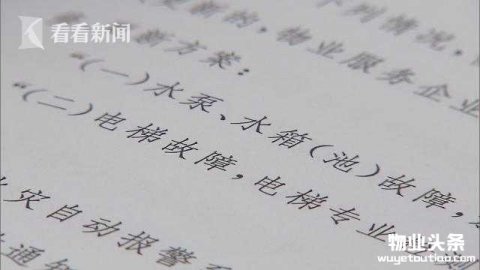 看看新闻
更新的，物业服务企业
新方案：
“（一）水泵、水箱（池）故障，
“（二）电梯故障，电梯专业
火灾自动报警
通知
物业头条
wuyetoutiao.com